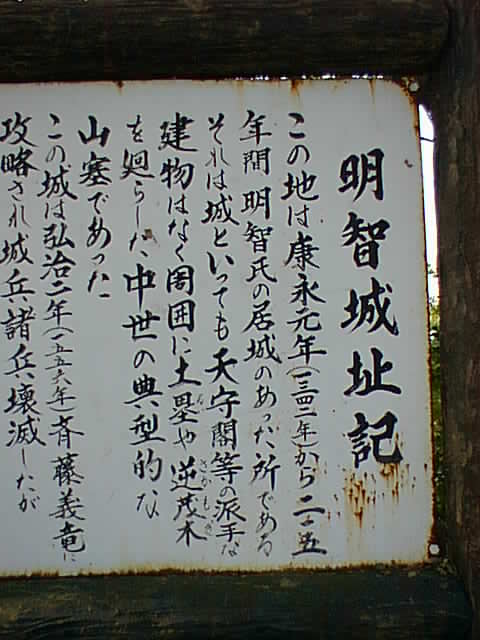 明智城址記
この地は康永元年(一三四二年)から二一五
年間明智氏の居城のあった所である
それは城といっても天守閣等の派手な
建物はなく周囲に土塁や逆茂木
を廻らした中世の典型的な
山塞であった
この城は弘治二年(一五五六年)斉藤義竜に
攻略され城兵諸兵壊滅したが